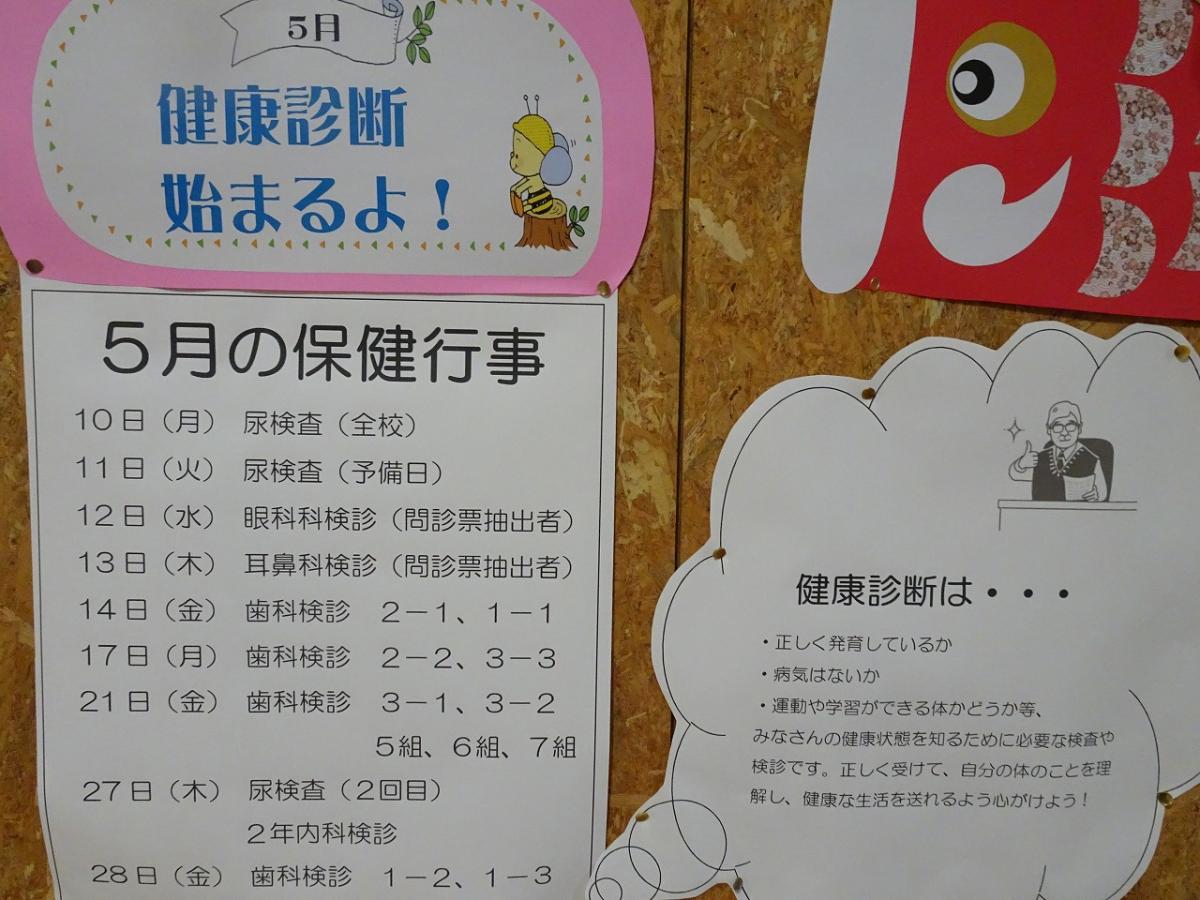 5月
健康診断
始まるよ！
５月の保健行事
10日（月） 尿検査（全校）
11日（火） 尿検査（予備日）
12日（水） 眼科科検診（問診票抽出者）
13日（木） 耳鼻科検診（問診票抽出者）
14日（金） 歯科検診 ２－１、１－１
17日（月） 歯科検診 ２－２、３－３
21日（金） 歯科検診 ３－１、３－２
５組、６組、７組
27日（木） 尿検査（２回目）
２年内科検診
28日（金） 歯科検診 １－２、１－３
健康診断は・・・
・正しく発育しているか
・病気はないか
・運動や学習ができる体かどうか等、
みなさんの健康状態を知るために必要な検査や
検診です。正しく受けて、自分の体のことを理
解し、健康な生活を送れるよう心がけよう！